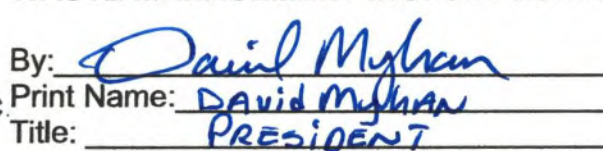 By: David Myhan
Print Name: David Myhan
Title: PRESIDENT